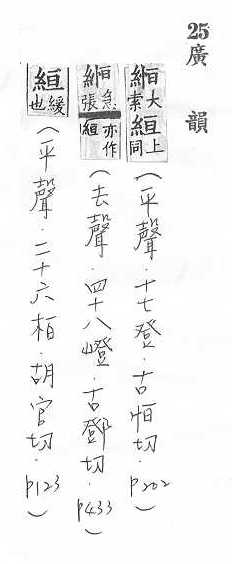 25廣韻
縆大索絙上同（平聲．十七登．古恒切．P202）
縆急張亦作絙（去聲．四十八嶝．古鄧切．P433）
絙緩也（平聲．二十六桓．胡官切．P123）